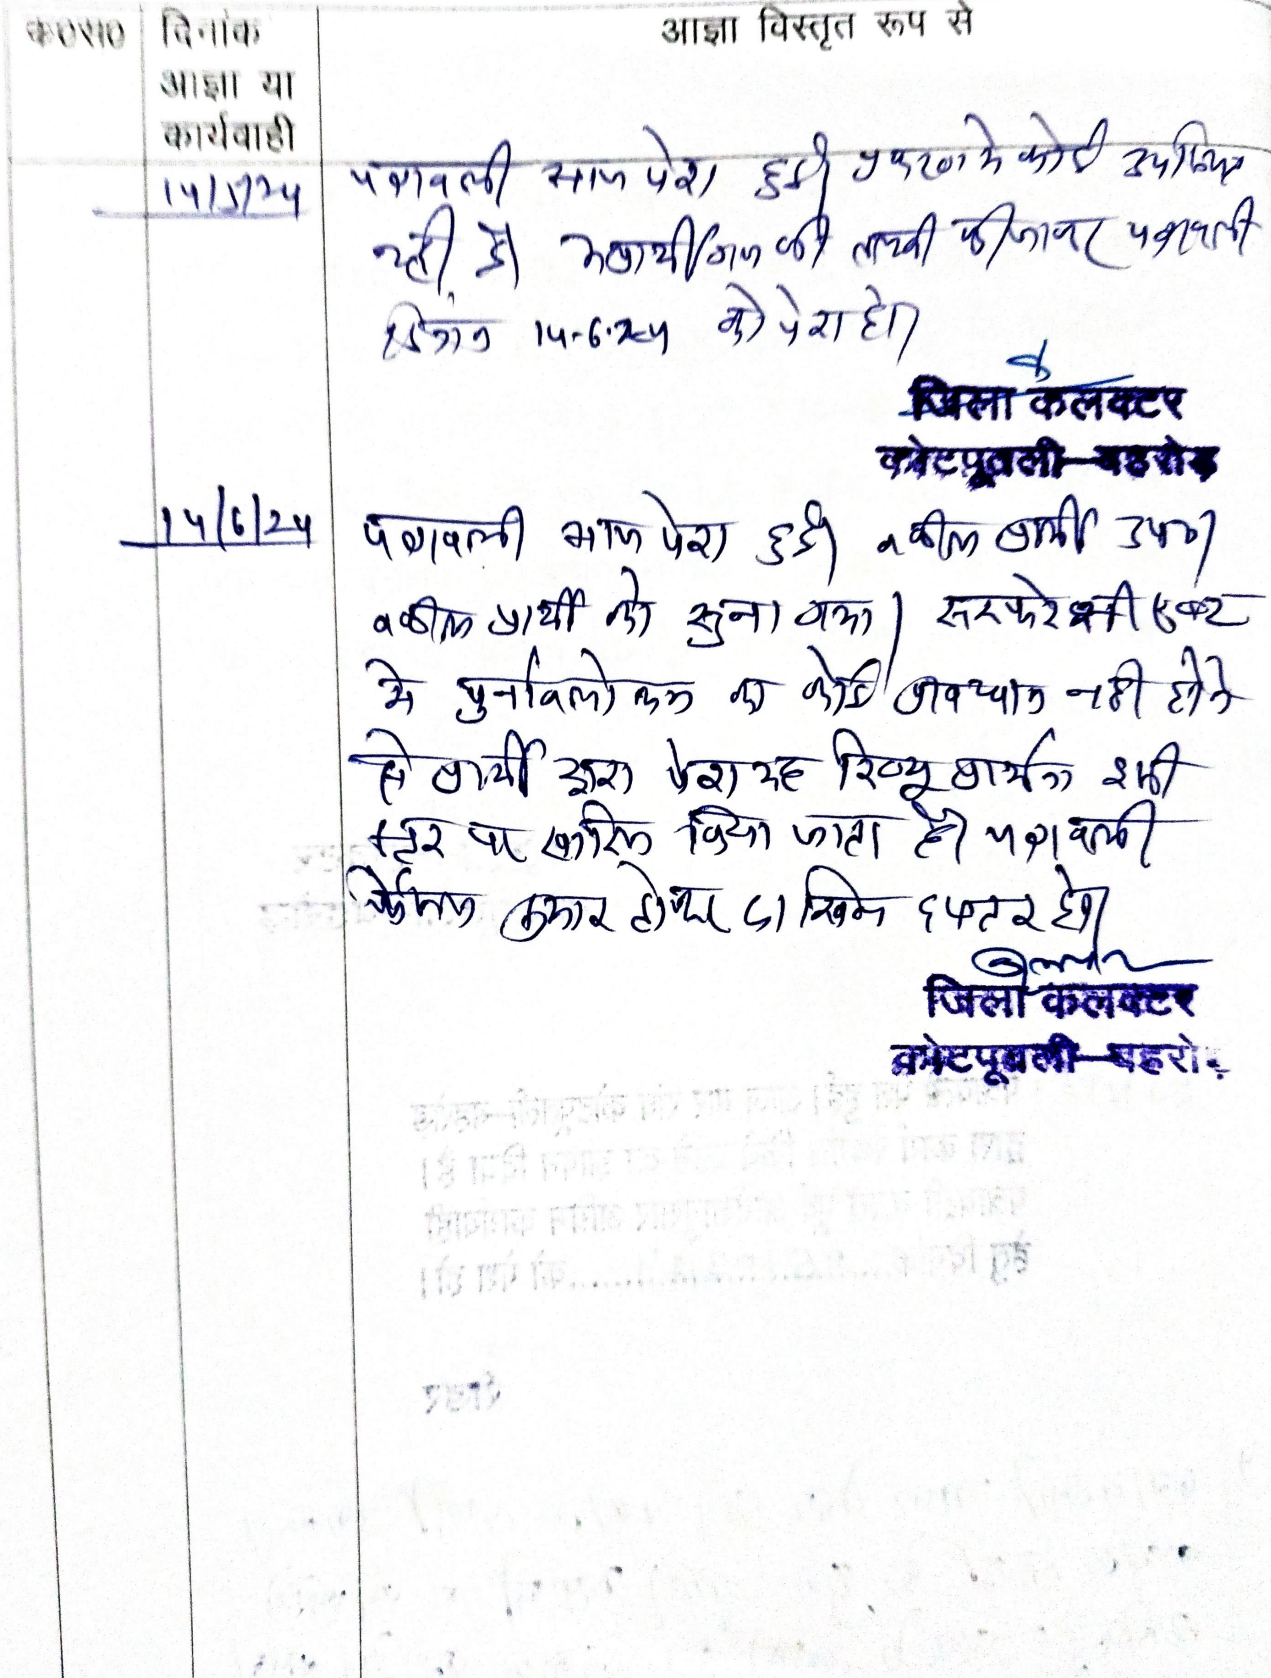 क०सं० दिनांक आज्ञा या कार्यवाही आज्ञा विस्तृत रूप से
14/5/24 पत्रावली आज पेश हुई। प्रकरण मे कोई उपस्थित
नही है। की पत्रावली
दिनांक 14-6-24 को पेश हो।
जिला कलक्टर
कोटपूतली-बहरोड़
14/6/24 पत्रावली आज पेश हुई। वकील प्रार्थी उप०।
वकील प्रार्थी को सुना गया। सरफेसी एक्ट
मे पुर्नावलोकन का कोई प्रावधान नही होने
से प्रार्थी द्वारा पेश यह रिव्यू प्रार्थना इसी
स्तर पर खारिज किया जाता है। पत्रावली
शुमार होकर दाखिल दफ्तर हो।
जिला कलक्टर
कोटपूतली-बहरोड़